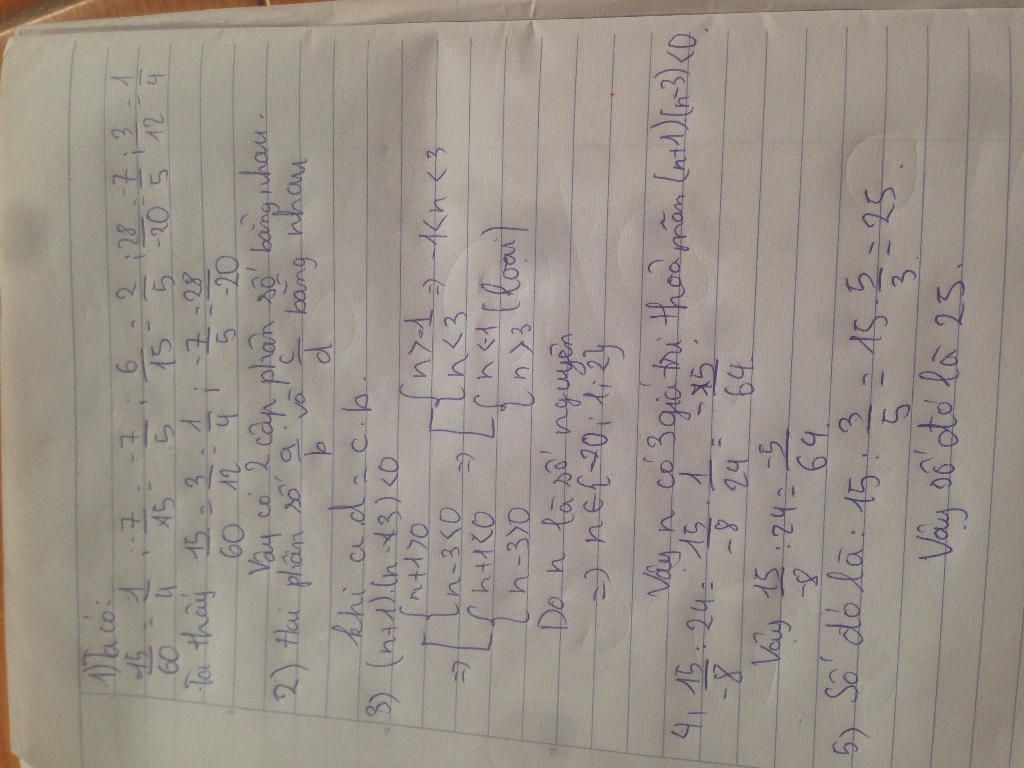 1) Ta có:
15/60 = 1/4 ; -7/15 = -7/5 ; 6/15 = 2/5 ; 28/-20 = -7/5 ; 3/12 = 1/4
Ta thấy 15/60 = 3/12 = 1/4 ; -7/5 = 28/-20
Vậy có 2 cặp phân số bằng nhau.
2) Hai phân số a/b và c/d bằng nhau
khi a.d = c.b.
3) (n+1)(n-3)<0
=> [ { n+1>0 => [ { n>-1 => -1<n<3
{ n-3<0 { n<3
{ n+1<0 { n<-1 (loại)
{ n-3>0 { n>3
Do n là số nguyên
=> n∈{0;1;2}
Vậy n có 3 giá trị thoả mãn (n+1)(n-3)<0.
4, 15/-8 : 24 = 15/-8 . 1/24 = -5/64
Vậy 15/-8 : 24 = -5/64
5) Số đó là: 15 : 3/5 = 15 . 5/3 = 25.
Vậy số đó là 25.